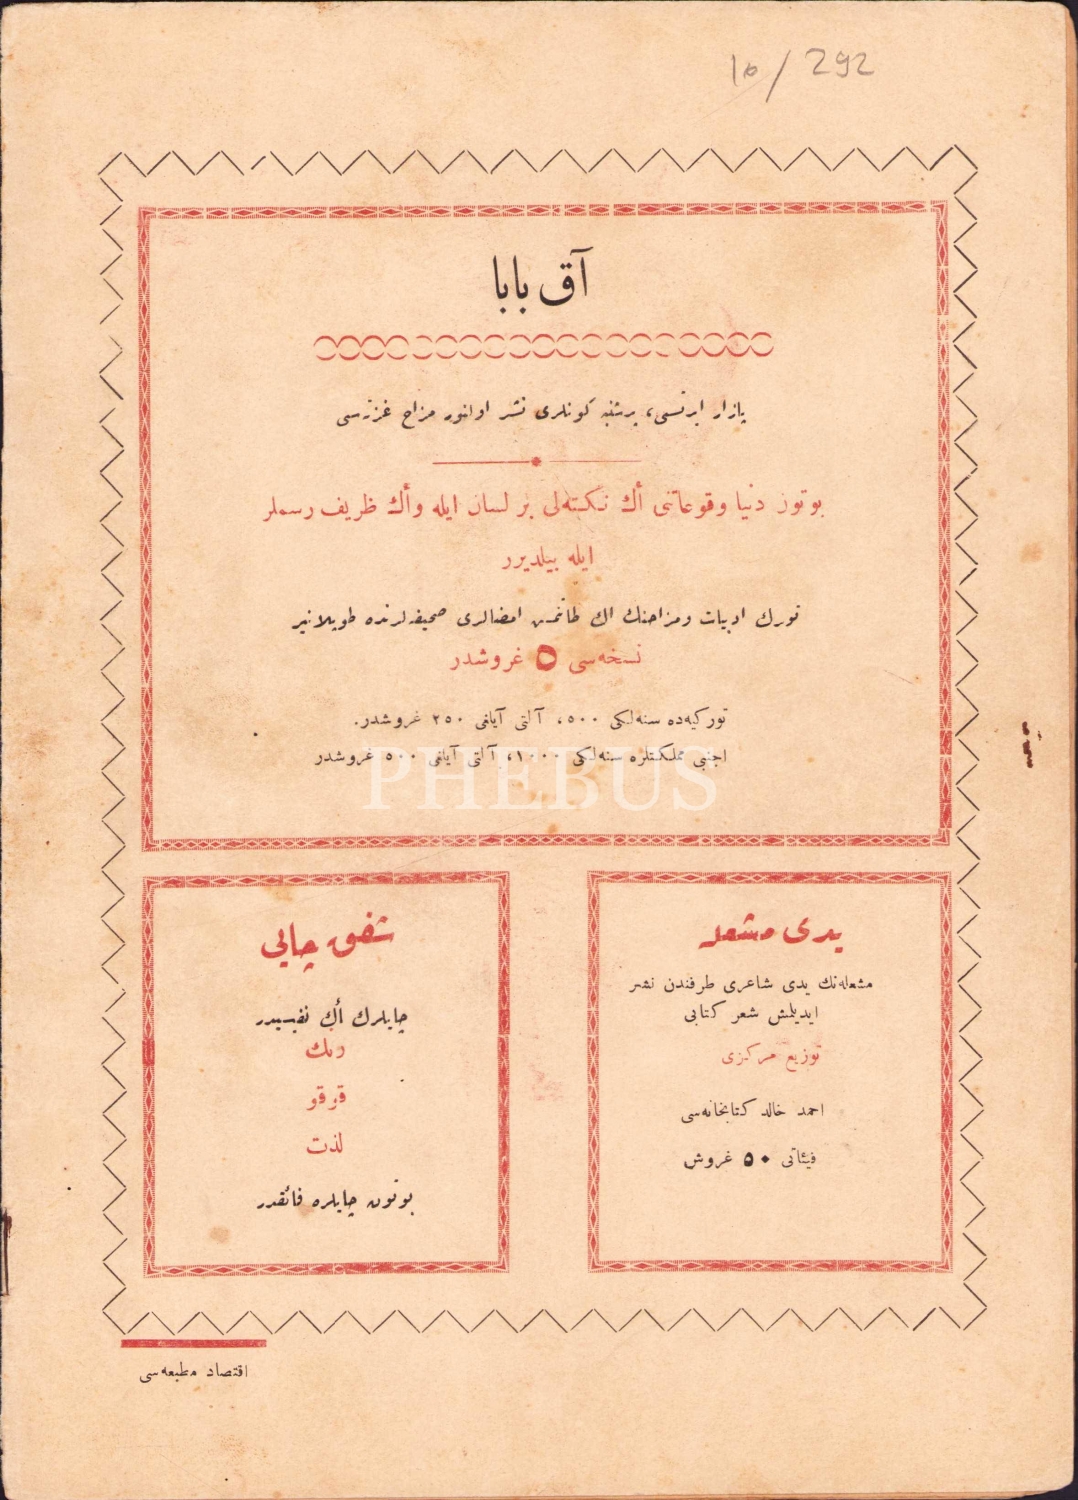 10/292
آق بابا
پازار ایرتسی، پرشنبه کونلری نشر اولنور مزاح غزته‌سی
بوتون دنیا وقوعاتنی أڭ نکته‌لی بر لسان ایله وأڭ ظریف رسملر
ایله بیلدیرر
تورك ادبیات ومزاحنك اڭ طانمش امضالری صحیفه‌لرنده طوپلانیر
نسخه‌سی ٥ غروشدر
تورکیه‌ده سنه‌لکی ٥٠٠، آلتی آیلغی ٢٥٠ غروشدر.
اجنبی مملکتلره سنه‌لکی ١٠٠٠، آلتی آیلغی ٥٠٠ غروشدر
PHEBUS
یدی مشعله
مشعله‌نك یدی شاعری طرفندن نشر
ایدیلمش شعر کتابی
توزیع مرکزی
احمد خالد کتابخانه‌سی
فیئاتی ٥٠ غروش
شفق چایی
چایلرك أڭ نفیسیدر
رنك
قوقو
لذت
بوتون چایلره فائقدر
اقتصاد مطبعه‌سی